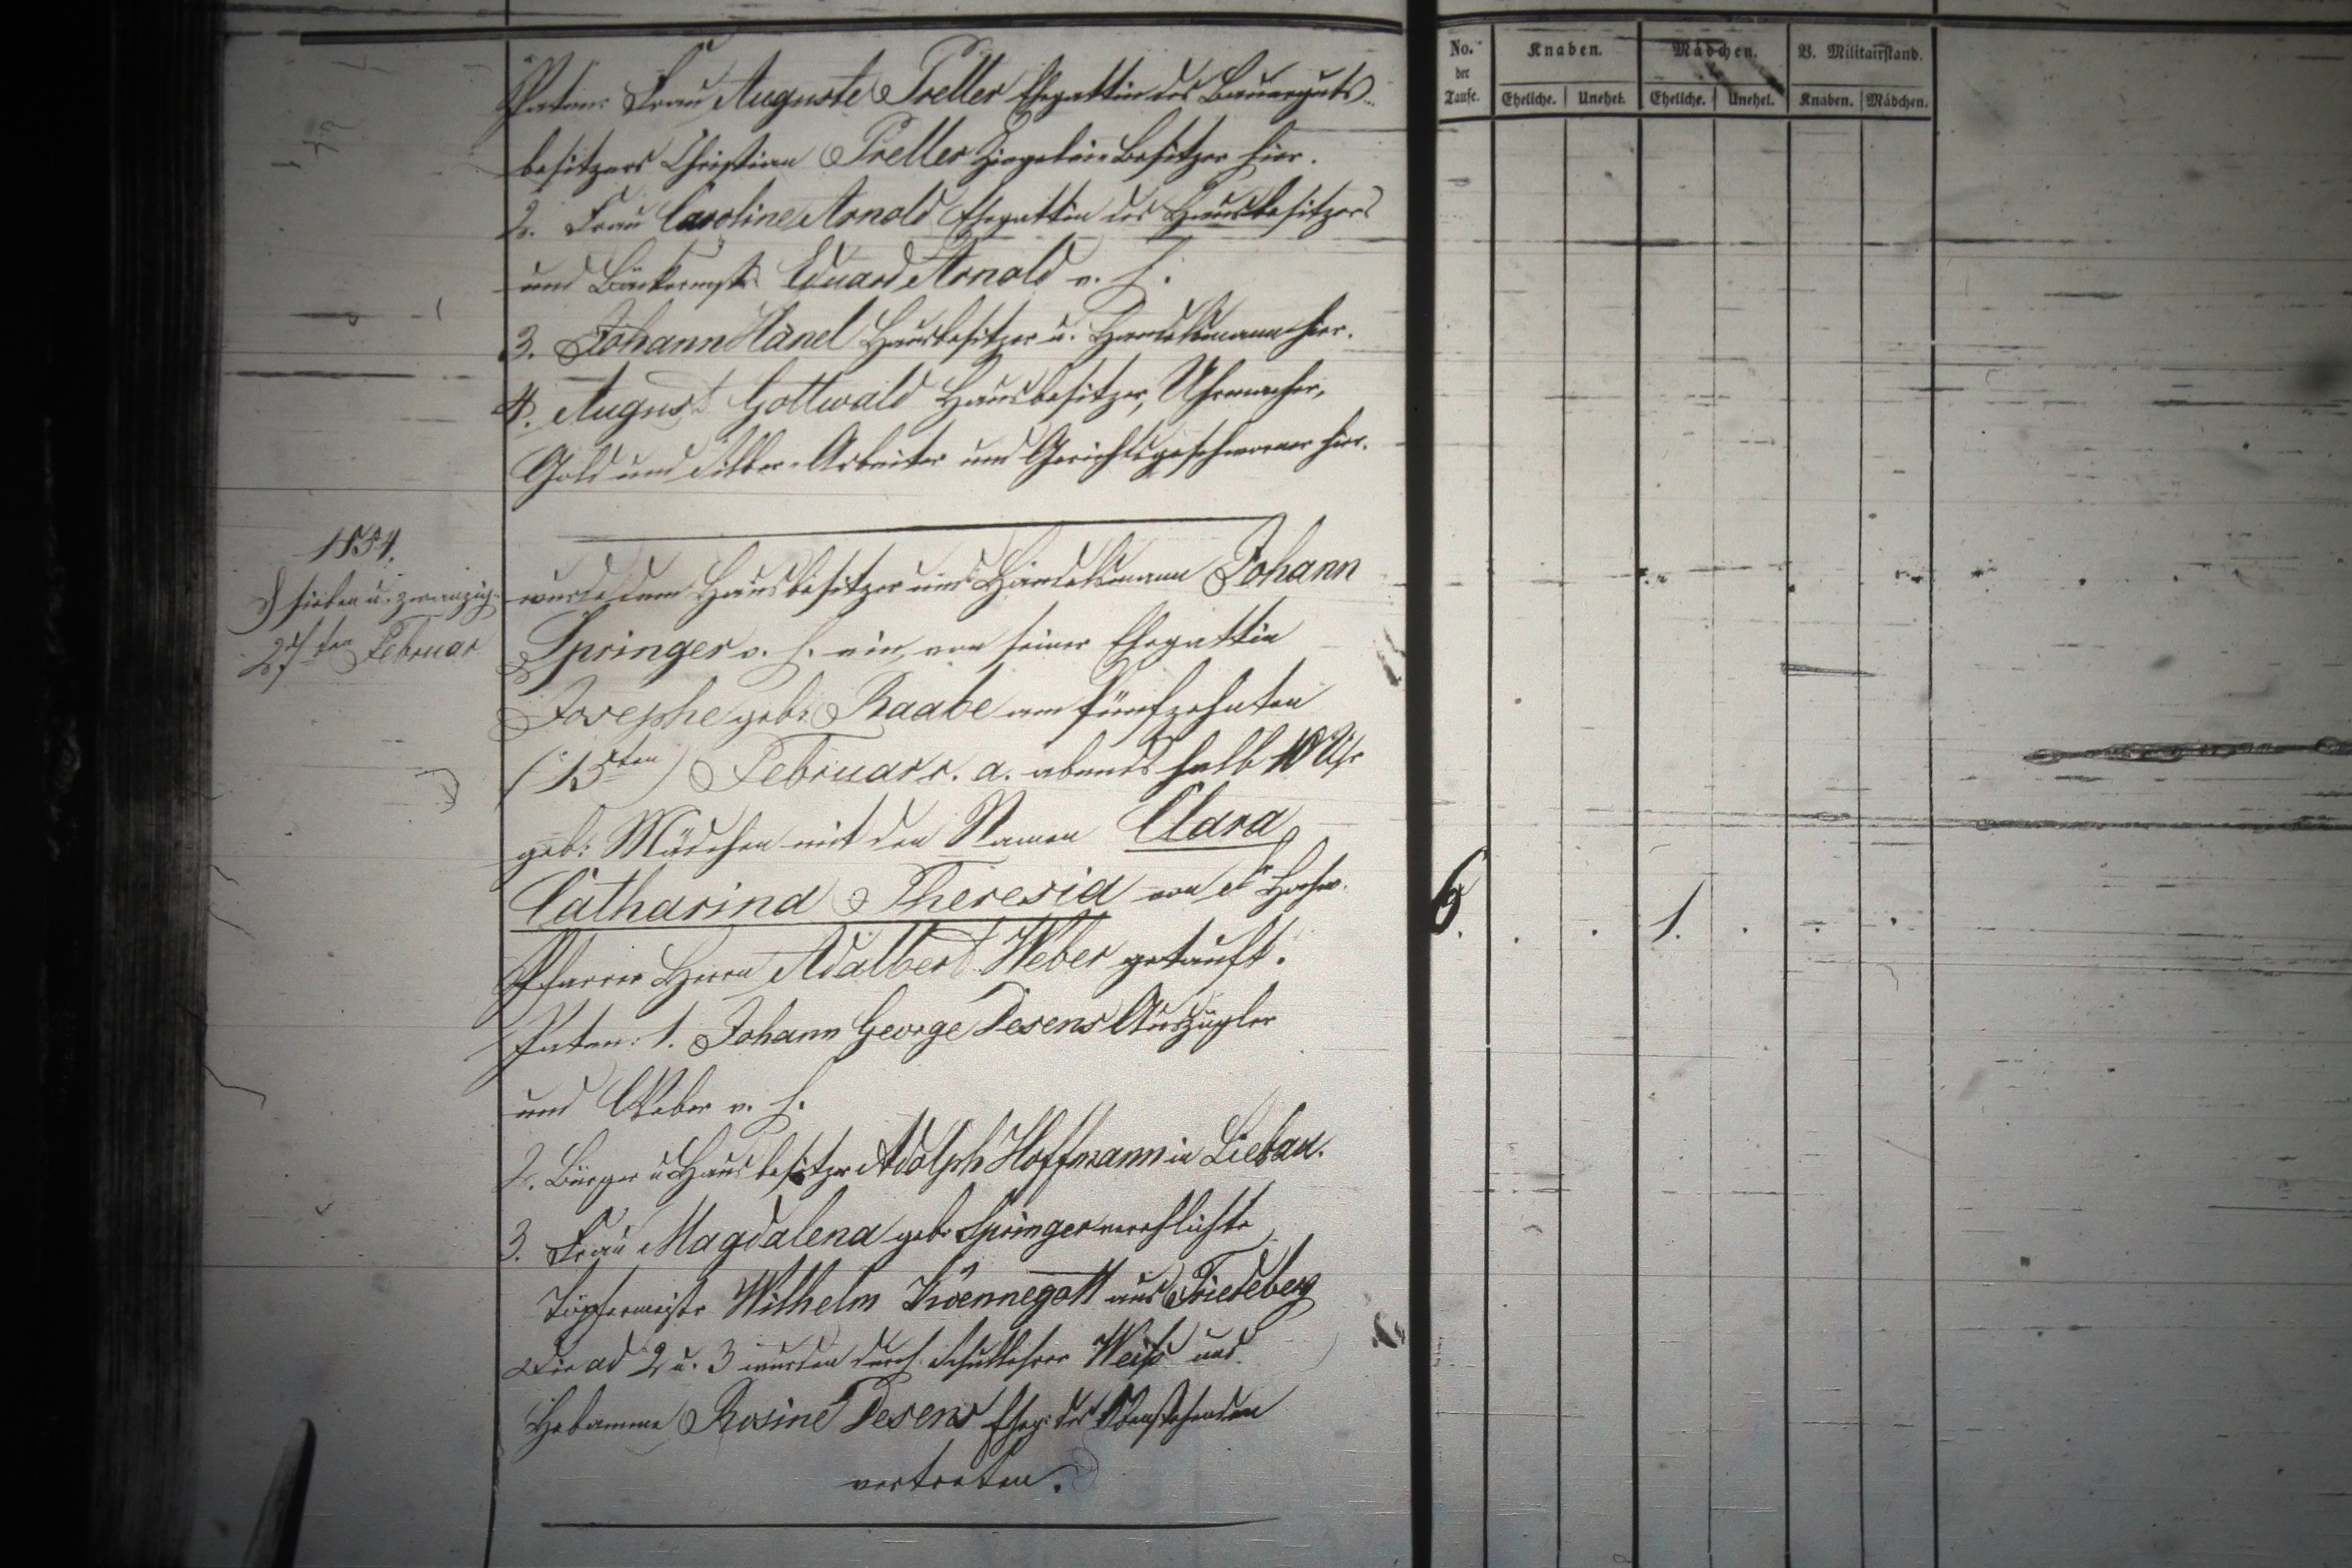 Paten: Frau Auguste Preller Ehegattin des Bauerguts-
besitzers Christian Preller Ziegelei-Besitzer hier.
2. Frau Caroline Arnold Ehegattin des Hausbesitzers
und Bäckermstr Eduard Arnold v. h.
3. Johann Hänel Hausbesitzer u. Handelsmann hier.
4. August Gottwald Hausbesitzer, Uhrmacher,
Gold und Silber-Arbeiter und Gerichtsgeschworner hier.
1854.
sieben u. zwanzig
27ten Februar
wurde dem Hausbesitzer und Handelsmann Johann
Springer v. h. ein, von seiner Ehegattin
Josephe geb: Raabe am fünfzehnten
(15ten) Februar c. a. abends halb 10 Uhr
geb: Mädchen mit den Namen Clara
Catharina Theresia von
Pfarrer Herrn Adalbert Weber getauft.
Paten: 1. Johann George Desens Auszügler
und Weber v. h.
2. Bürger u Hausbesitzer Adolph Hoffmann in Liebau.
3. Frau Magdalena geb. Springer verehlichte
Töpfermeistr Wilhelm aus Friedeberg
Die ad 2 u. 3 wurden durch Schullehrer Weiß und
Hebamme Rosine Desens Eheg: des Obenstehenden
vertreten.
No. der Taufe.
Knaben.
Mädchen.
B. Militairstand.
Eheliche.
Unehel.
Eheliche.
Unehel.
Knaben.
Mädchen.
6. . . 1. . . .